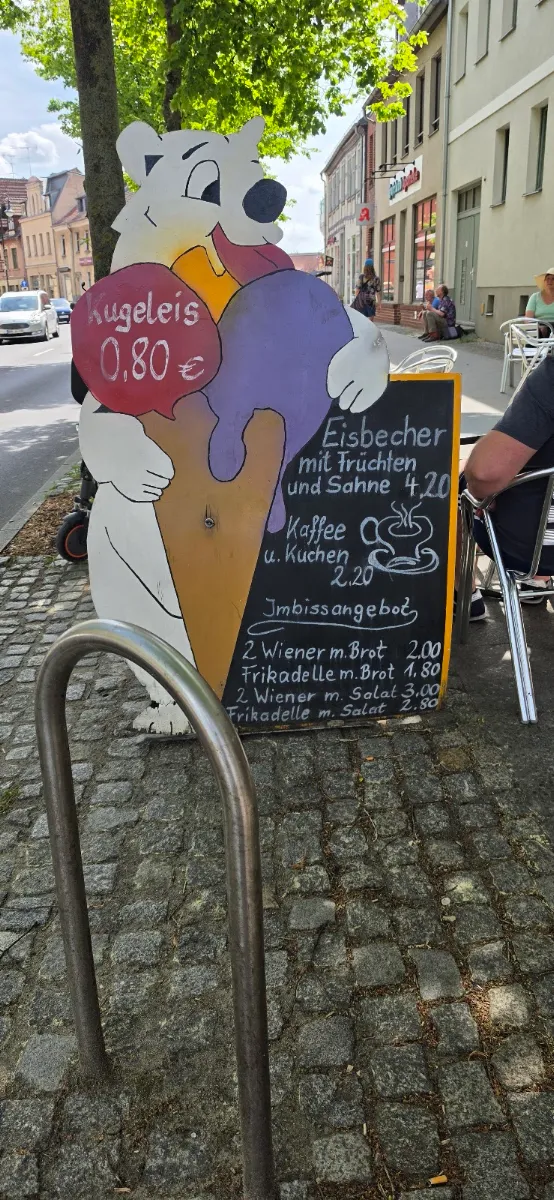 Kugeleis
0,80 €
Eisbecher
mit Früchten
und Sahne 4,20
Kaffee
u. Kuchen
2.20
Imbissangebot
2 Wiener m. Brot 2.00
Frikadelle m. Brot 1.80
2 Wiener m. Salat 3.00
Frikadelle m. Salat 2.80